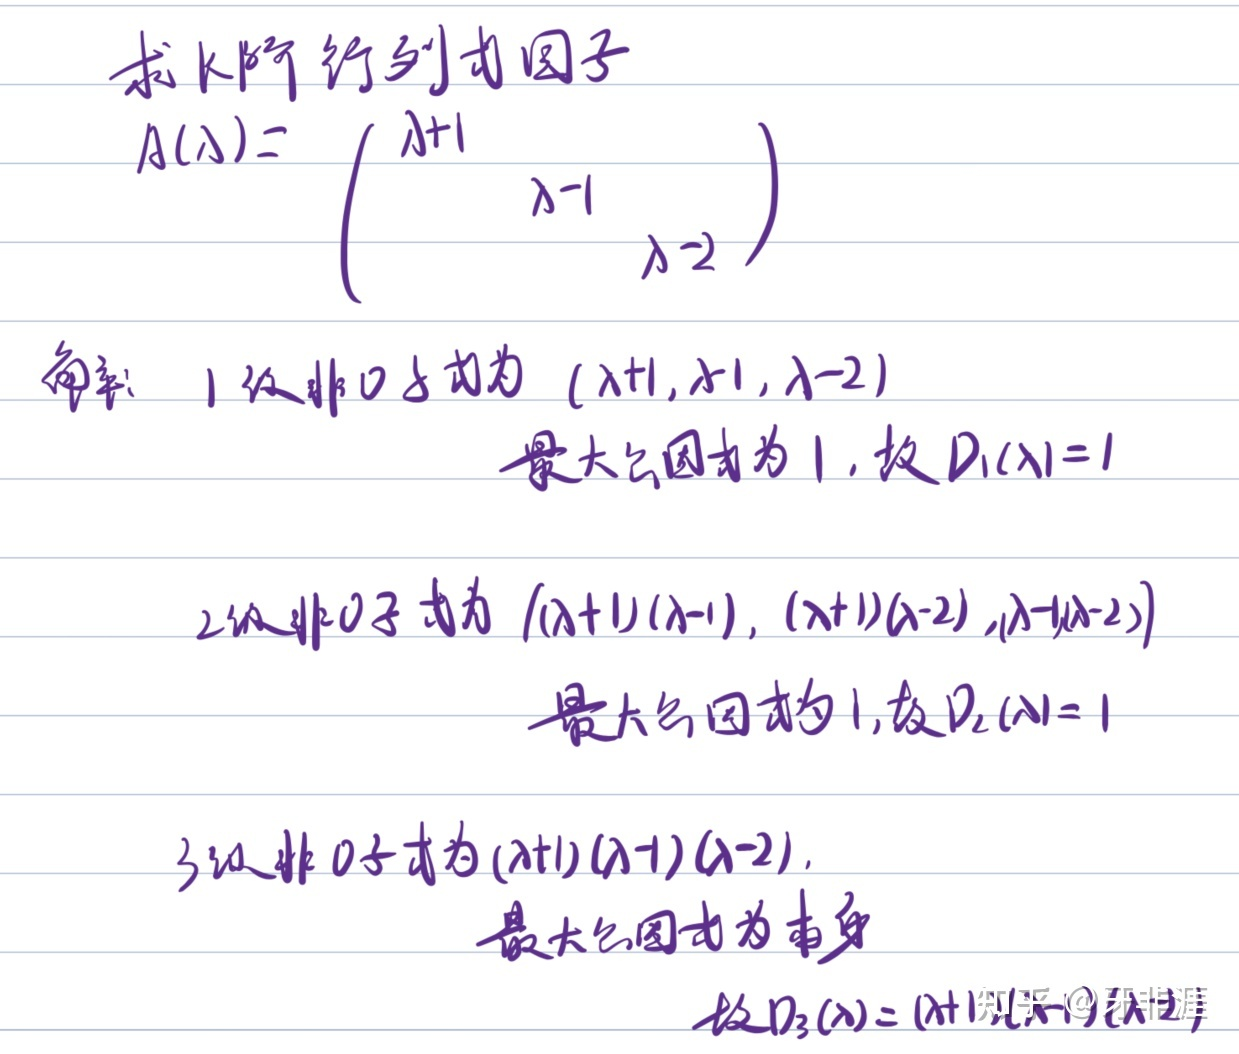 求K阶行列式因子
A(λ)= ( λ+1
λ-1
λ-2 )
解: 1级非0子式为 (λ+1, λ-1, λ-2)
最大公因式为1, 故D₁(λ)=1
2级非0子式为 ((λ+1)(λ-1), (λ+1)(λ-2), (λ-1)(λ-2))
最大公因式为1, 故D₂(λ)=1
3级非0子式为(λ+1)(λ-1)(λ-2).
最大公因式为本身
故D₃(λ)=(λ+1)(λ-1)(λ-2)
知乎 @牙非涯